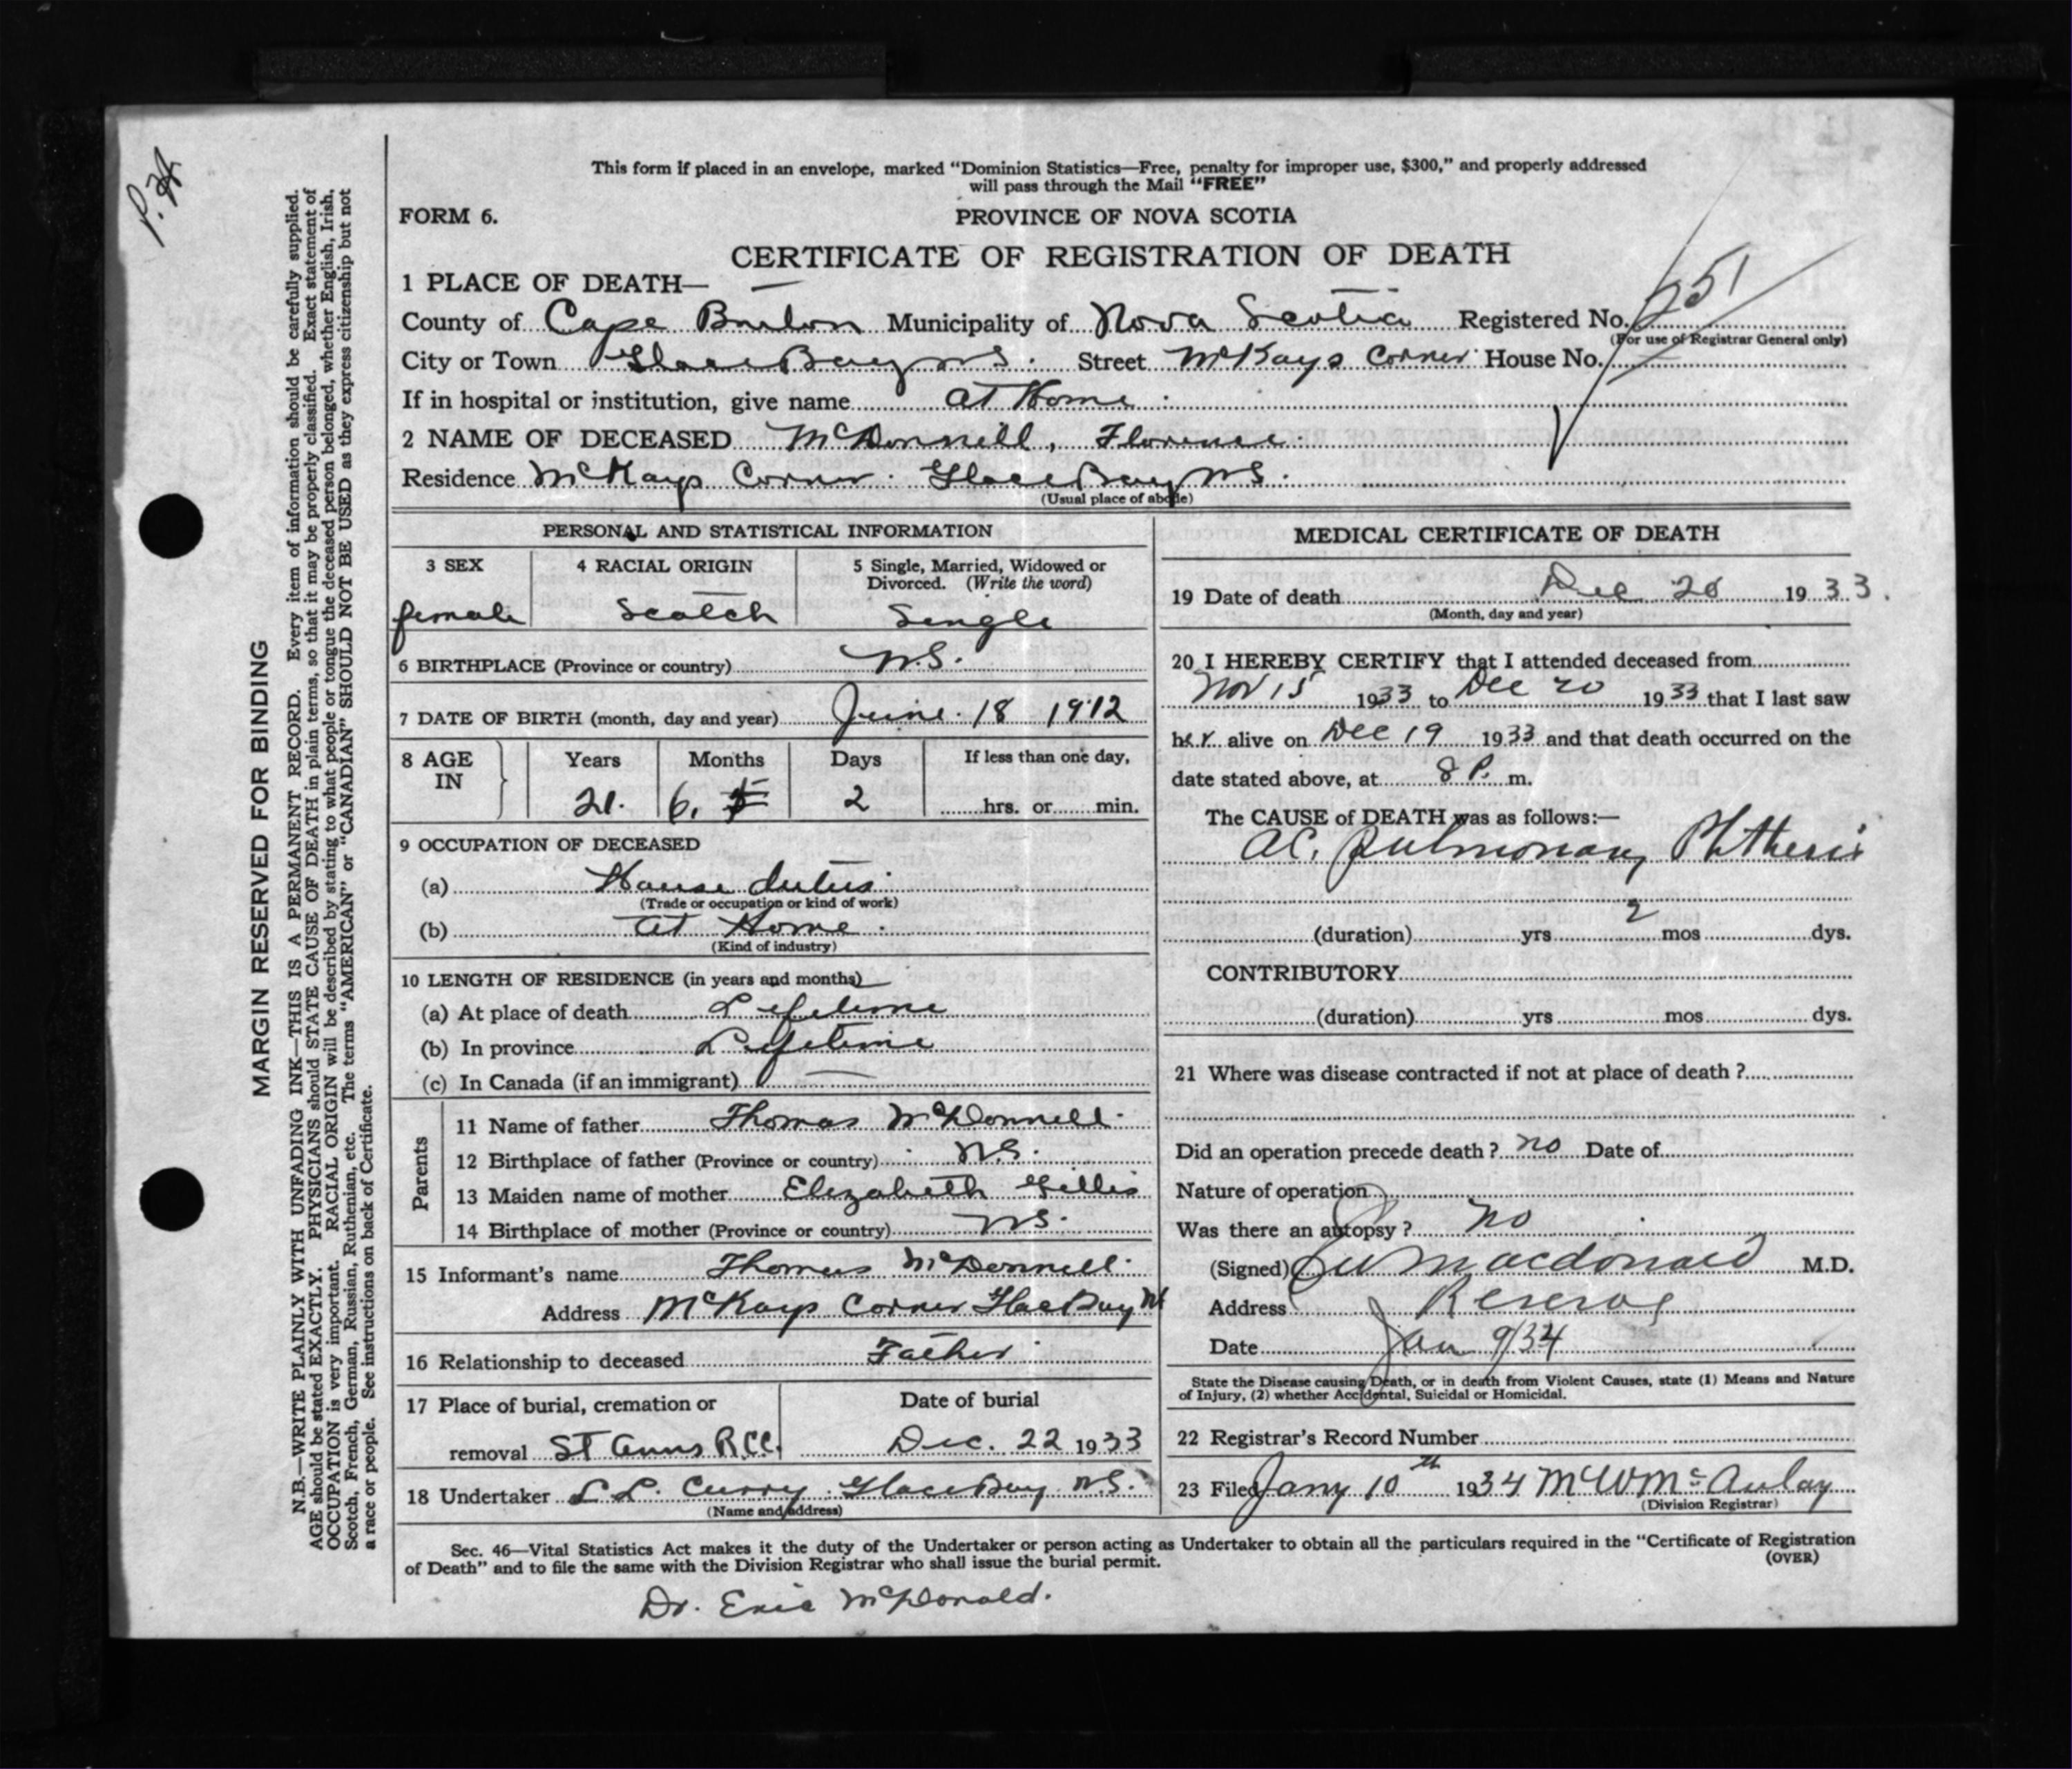 This form if placed in an envelope, marked “Dominion Statistics—Free, penalty for improper use, $300,” and properly addressed
will pass through the Mail “FREE”
FORM 6. PROVINCE OF NOVA SCOTIA
CERTIFICATE OF REGISTRATION OF DEATH
1 PLACE OF DEATH—
County of Cape Breton Municipality of Nova Scotia Registered No. 251
(For use of Registrar General only)
City or Town Glace Bay N.S. Street McKays Corner House No.
If in hospital or institution, give name at Home
2 NAME OF DECEASED McDonnell, Florence
Residence McKays Corner. Glace Bay N.S.
(Usual place of abode)
PERSONAL AND STATISTICAL INFORMATION
3 SEX 4 RACIAL ORIGIN 5 Single, Married, Widowed or
Divorced. (Write the word)
female Scotch Single
6 BIRTHPLACE (Province or country) N.S.
7 DATE OF BIRTH (month, day and year) June 18 1912
8 AGE IN Years Months Days If less than one day,
21. 6. 2 hrs. or min.
9 OCCUPATION OF DECEASED
(a) House duties
(Trade or occupation or kind of work)
(b) at Home.
(Kind of industry)
10 LENGTH OF RESIDENCE (in years and months)
(a) At place of death Lifetime
(b) In province Lifetime
(c) In Canada (if an immigrant) —
Parents
11 Name of father Thomas McDonnell
12 Birthplace of father (Province or country) N.S.
13 Maiden name of mother Elizabeth Gillis
14 Birthplace of mother (Province or country) N.S.
15 Informant’s name Thomas McDonnell
Address McKays Corner Glace Bay N
16 Relationship to deceased Father
17 Place of burial, cremation or Date of burial
removal St Anns R.C.C. Dec. 22 1933
18 Undertaker L L. Curry. Glace Bay N.S.
(Name and address)
MEDICAL CERTIFICATE OF DEATH
19 Date of death Dec 20 1933.
(Month, day and year)
20 I HEREBY CERTIFY that I attended deceased from
Nov 15 1933 to Dec 20 1933 that I last saw
her alive on Dec 19 1933 and that death occurred on the
date stated above, at 8 P. m.
The CAUSE of DEATH was as follows:—
Ac. Pulmonary Phthisis
(duration) yrs 2 mos dys.
CONTRIBUTORY
(duration) yrs mos dys.
21 Where was disease contracted if not at place of death ?
Did an operation precede death ? no Date of
Nature of operation
Was there an autopsy ? no
(Signed) Macdonald M.D.
Address Reserve
Date Jan 9/34
State the Disease causing Death, or in death from Violent Causes, state (1) Means and Nature
of Injury, (2) whether Accidental, Suicidal or Homicidal.
22 Registrar’s Record Number
23 Filed Jany 10th 1934 McAulay
(Division Registrar)
Sec. 46—Vital Statistics Act makes it the duty of the Undertaker or person acting as Undertaker to obtain all the particulars required in the “Certificate of Registration
of Death” and to file the same with the Division Registrar who shall issue the burial permit. (OVER)
Dr. Eric McDonald.
MARGIN RESERVED FOR BINDING
N.B.—WRITE PLAINLY WITH UNFADING INK—THIS IS A PERMANENT RECORD. Every item of information should be carefully supplied.
AGE should be stated EXACTLY. PHYSICIANS should STATE CAUSE OF DEATH in plain terms, so that it may be properly classified. Exact statement of
OCCUPATION is very important. RACIAL ORIGIN will be described by stating to what people or tongue the deceased person belonged, whether English, Irish,
Scotch, French, German, Russian, Ruthenian, etc. The terms “AMERICAN” or “CANADIAN” SHOULD NOT BE USED as they express citizenship but not
a race or people. See instructions on back of Certificate.